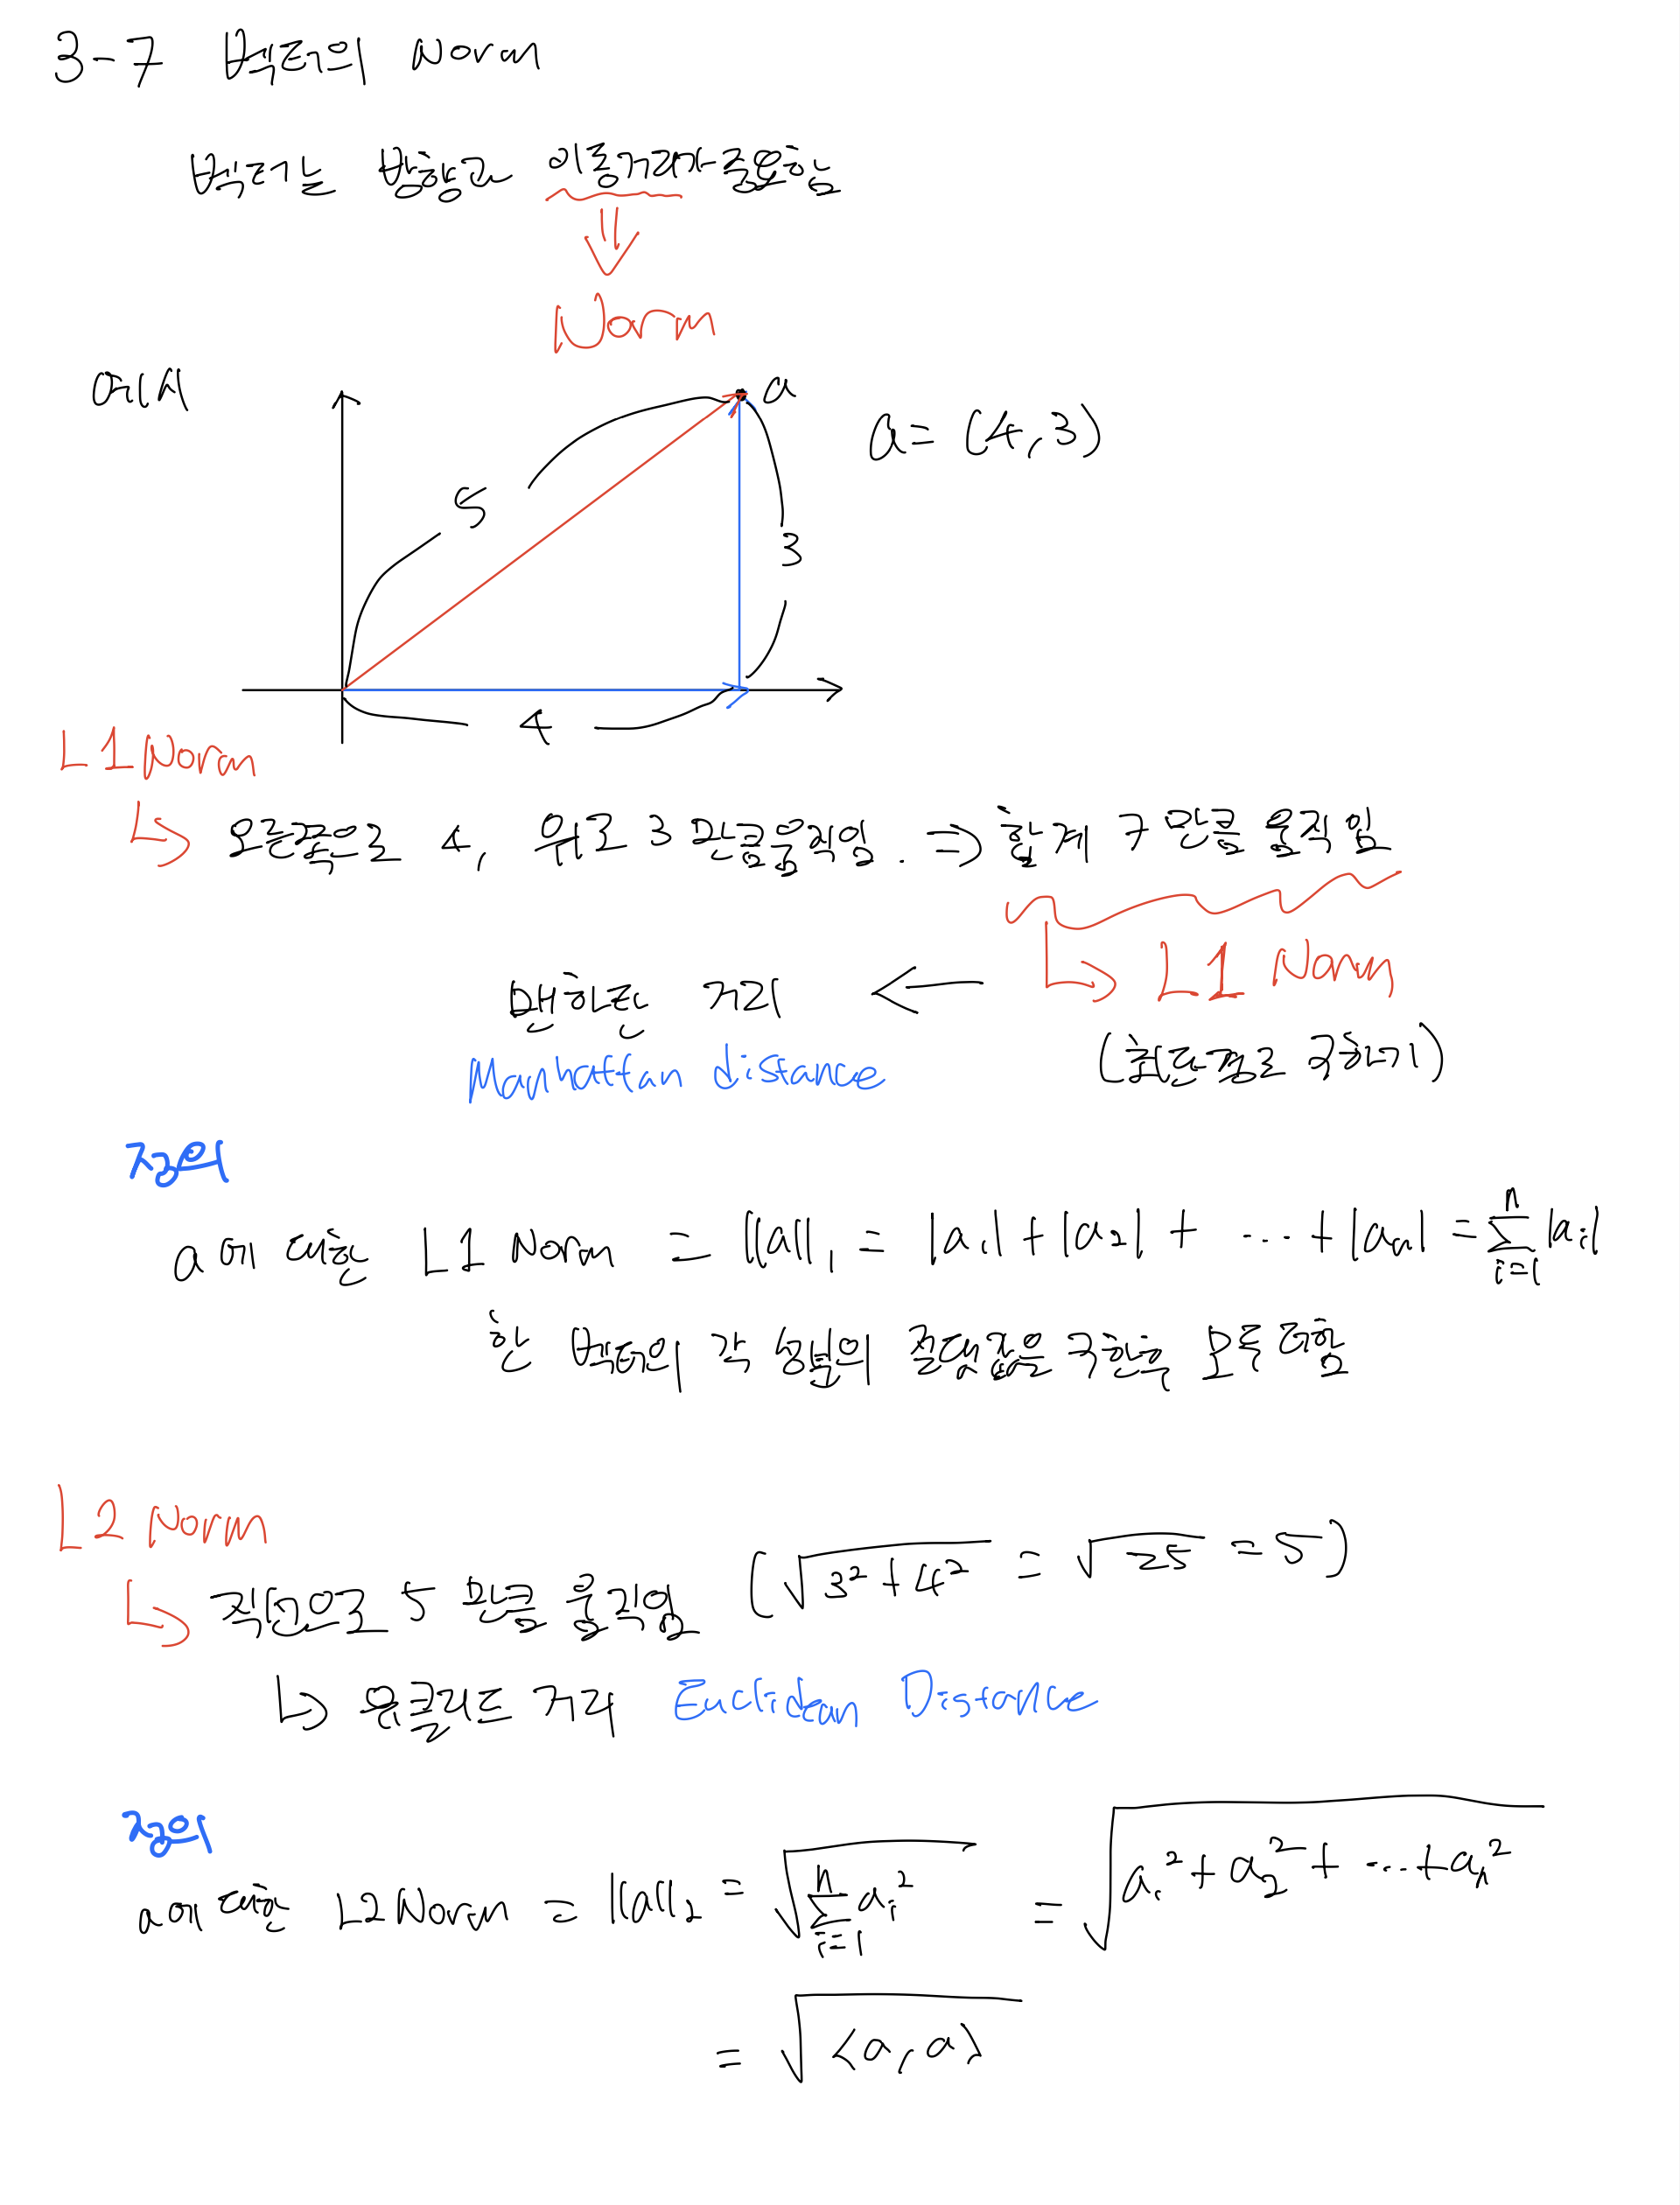 3-7 벡터의 Norm
벡터는 방향과 이동거리가 중요함
Norm
예시
a
a = (4, 3)
5
3
4
L1 Norm
↳ 오른쪽으로 4, 위로 3 만큼 움직임. ⇒ 합계 7 만큼 움직임
↳ L1 Norm
맨하탄 거리 ←
(최단경로 구하기)
Manhattan distance
정의
a에 대한 L1 Norm = ||a||₁ = |a₁| + |a₂| + ... + |aₙ| = ∑ⁿᵢ₌₁ |aᵢ|
한 벡터의 각 성분의 절댓값을 구한 후 모두 더함
L2 Norm
↳ 직선으로 5 만큼 움직임 (√(3² + 4²) = √25 = 5)
↳ 유클리드 거리 Euclidean Distance
정의
a에 대한 L2 Norm = ||a||₂ = √(∑ⁿᵢ₌₁ aᵢ²) = √(a₁² + a₂² + ... + aₙ²)
= √<a, a>